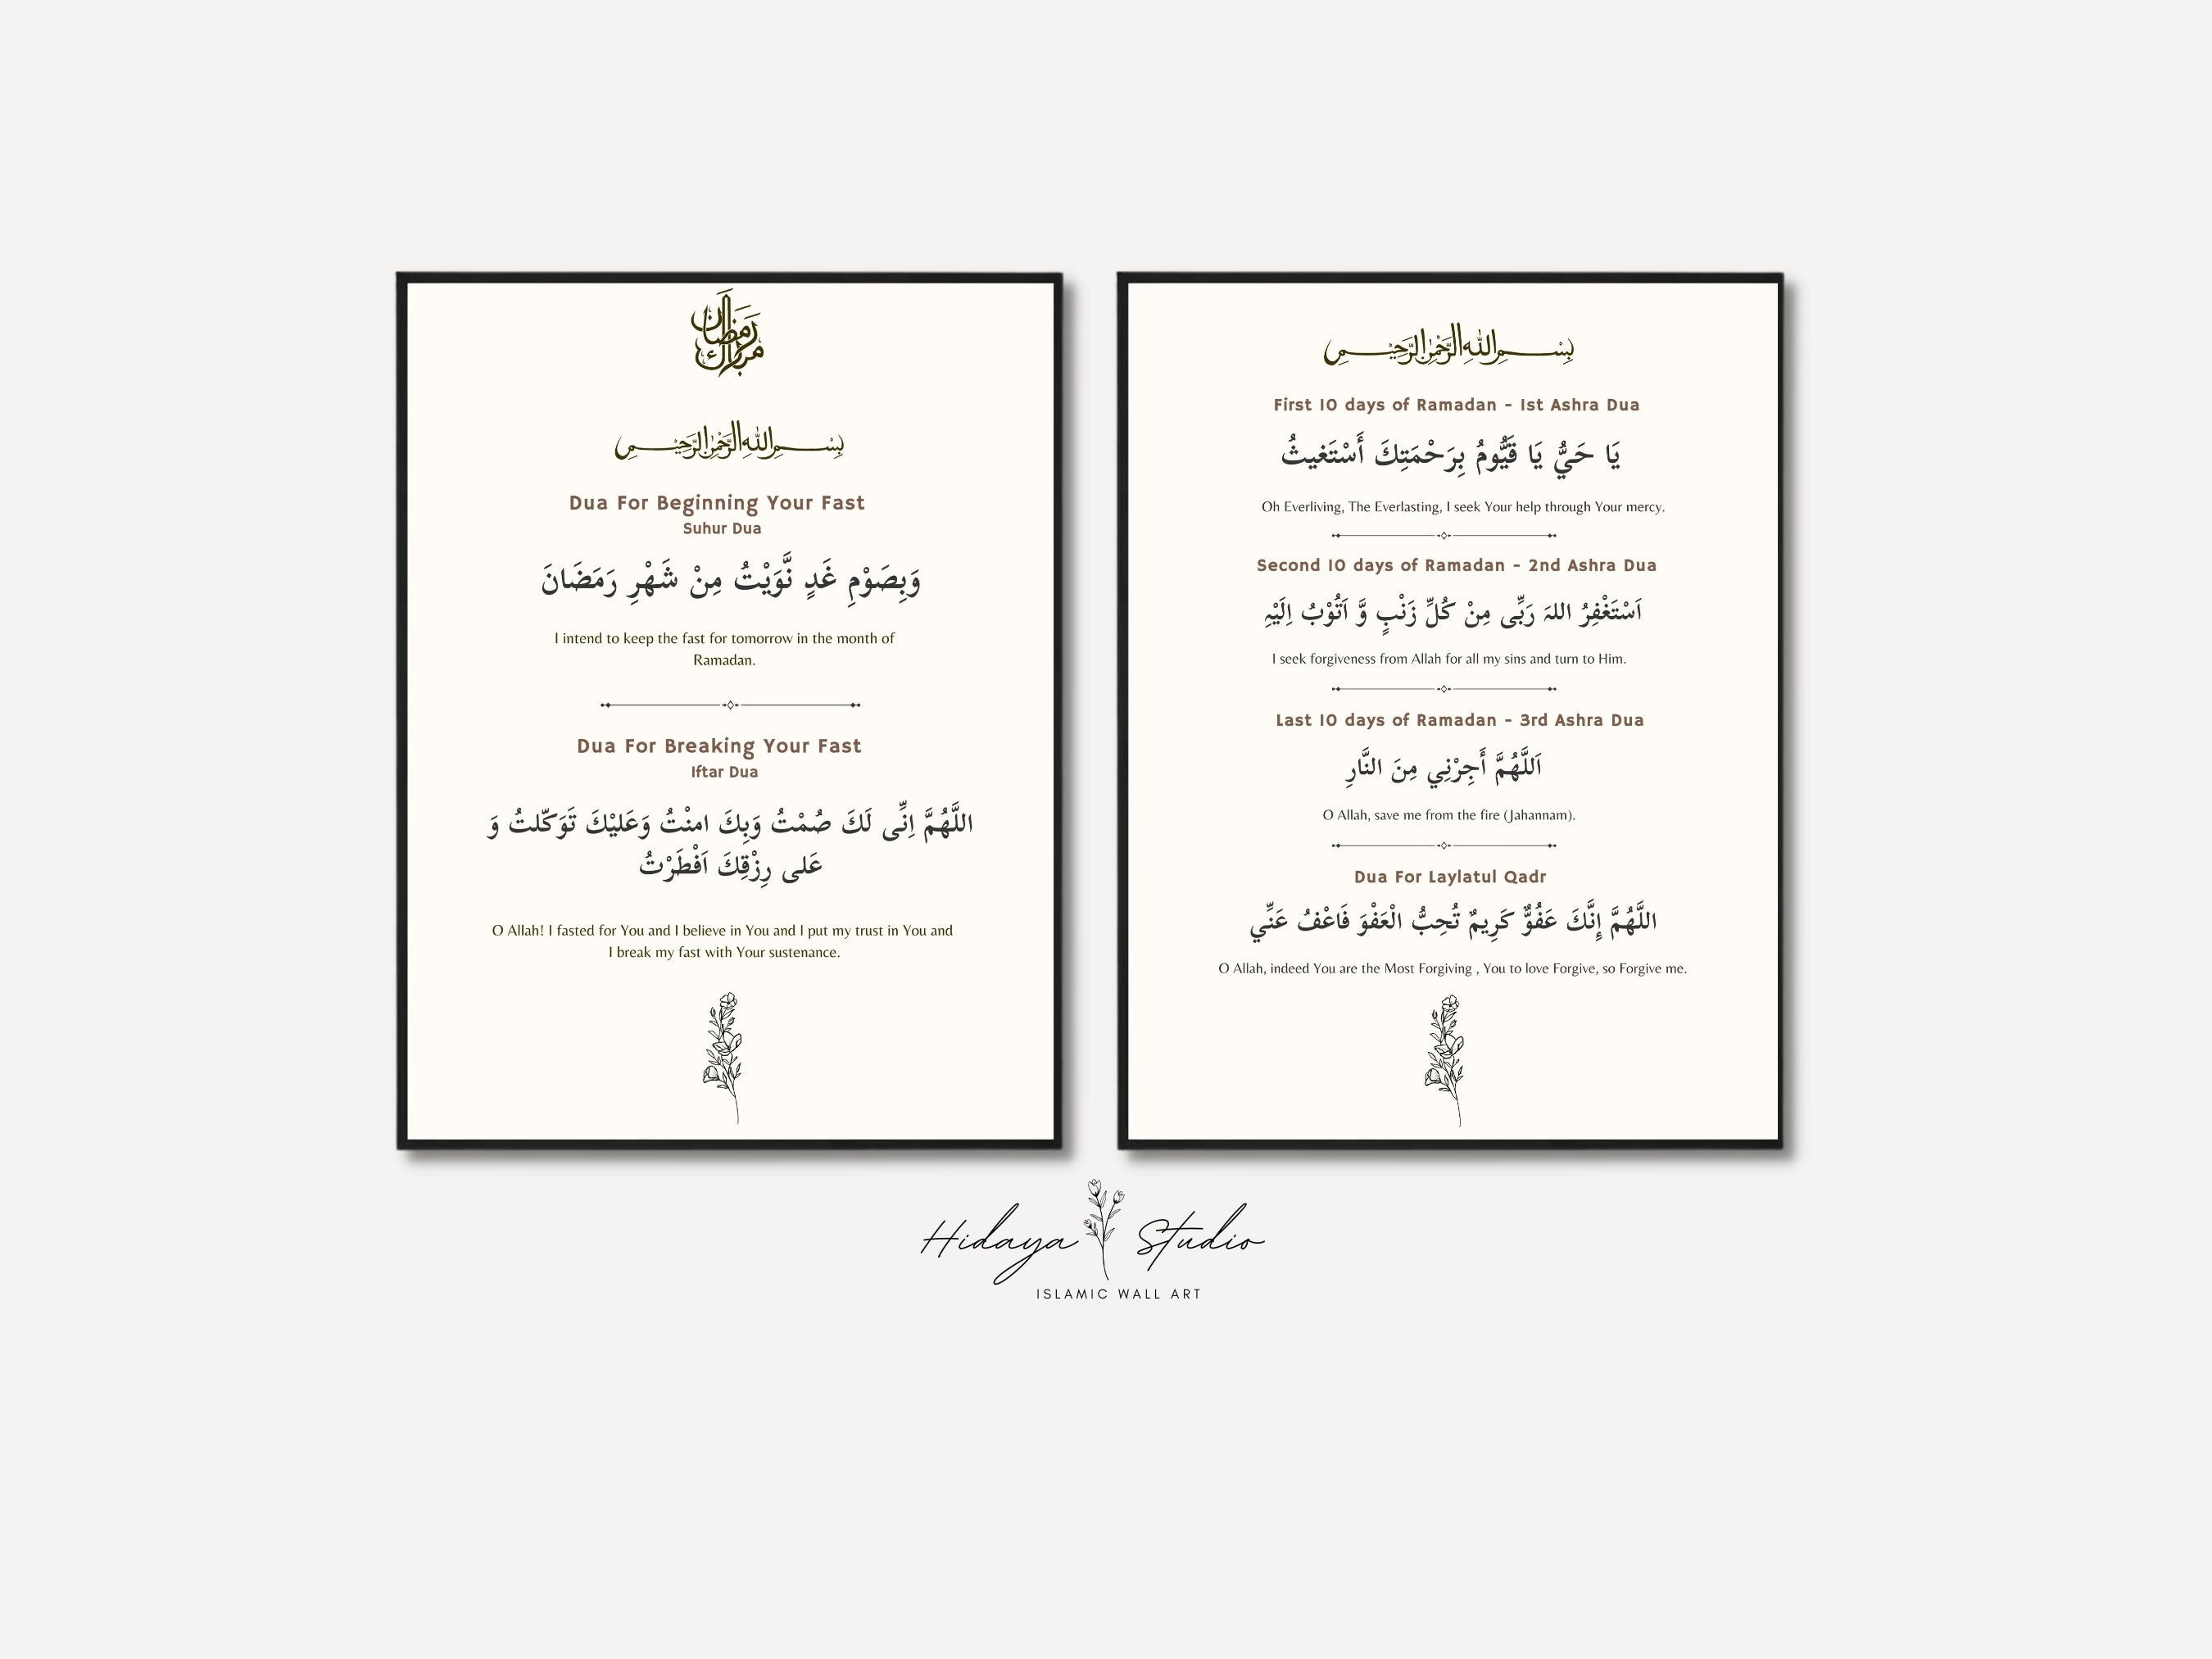 رمضان مبارك
بِسْمِ اللهِ الرَّحْمٰنِ الرَّحِيْمِ
Dua For Beginning Your Fast
Suhur Dua
وَبِصَوْمِ غَدٍ نَّوَيْتُ مِنْ شَهْرِ رَمَضَانَ
I intend to keep the fast for tomorrow in the month of
Ramadan.
Dua For Breaking Your Fast
Iftar Dua
اللَّهُمَّ اِنِّى لَكَ صُمْتُ وَبِكَ امنْتُ وَعَليْكَ تَوَكّلتُ وَ
عَلى رِزْقِكَ اَفْطَرْتُ
O Allah! I fasted for You and I believe in You and I put my trust in You and
I break my fast with Your sustenance.
بِسْمِ اللهِ الرَّحْمٰنِ الرَّحِيْمِ
First 10 days of Ramadan - 1st Ashra Dua
يَا حَيُّ يَا قَيُّومُ بِرَحْمَتِكَ أَسْتَغيثُ
Oh Everliving, The Everlasting, I seek Your help through Your mercy.
Second 10 days of Ramadan - 2nd Ashra Dua
اَسْتَغْفِرُ اللہَ رَبِّی مِنْ کُلِّ زَنْبٍ وَّ اَتُوْبُ اِلَیْہِ
I seek forgiveness from Allah for all my sins and turn to Him.
Last 10 days of Ramadan - 3rd Ashra Dua
اَللَّهُمَّ أَجِرْنِي مِنَ النَّارِ
O Allah, save me from the fire (Jahannam).
Dua For Laylatul Qadr
اللَّهُمَّ إِنَّكَ عَفُوٌّ كَرِيمٌ تُحِبُّ الْعَفْوَ فَاعْفُ عَنِّي
O Allah, indeed You are the Most Forgiving , You to love Forgive, so Forgive me.
Hidaya Studio
ISLAMIC WALL ART